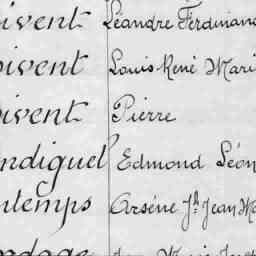 ivent Léandre Ferdinand
oivent Louis René Mari
oivent Pierre
ndiguel Edmond Léon
ntemps Arsène Jh Jean Ma